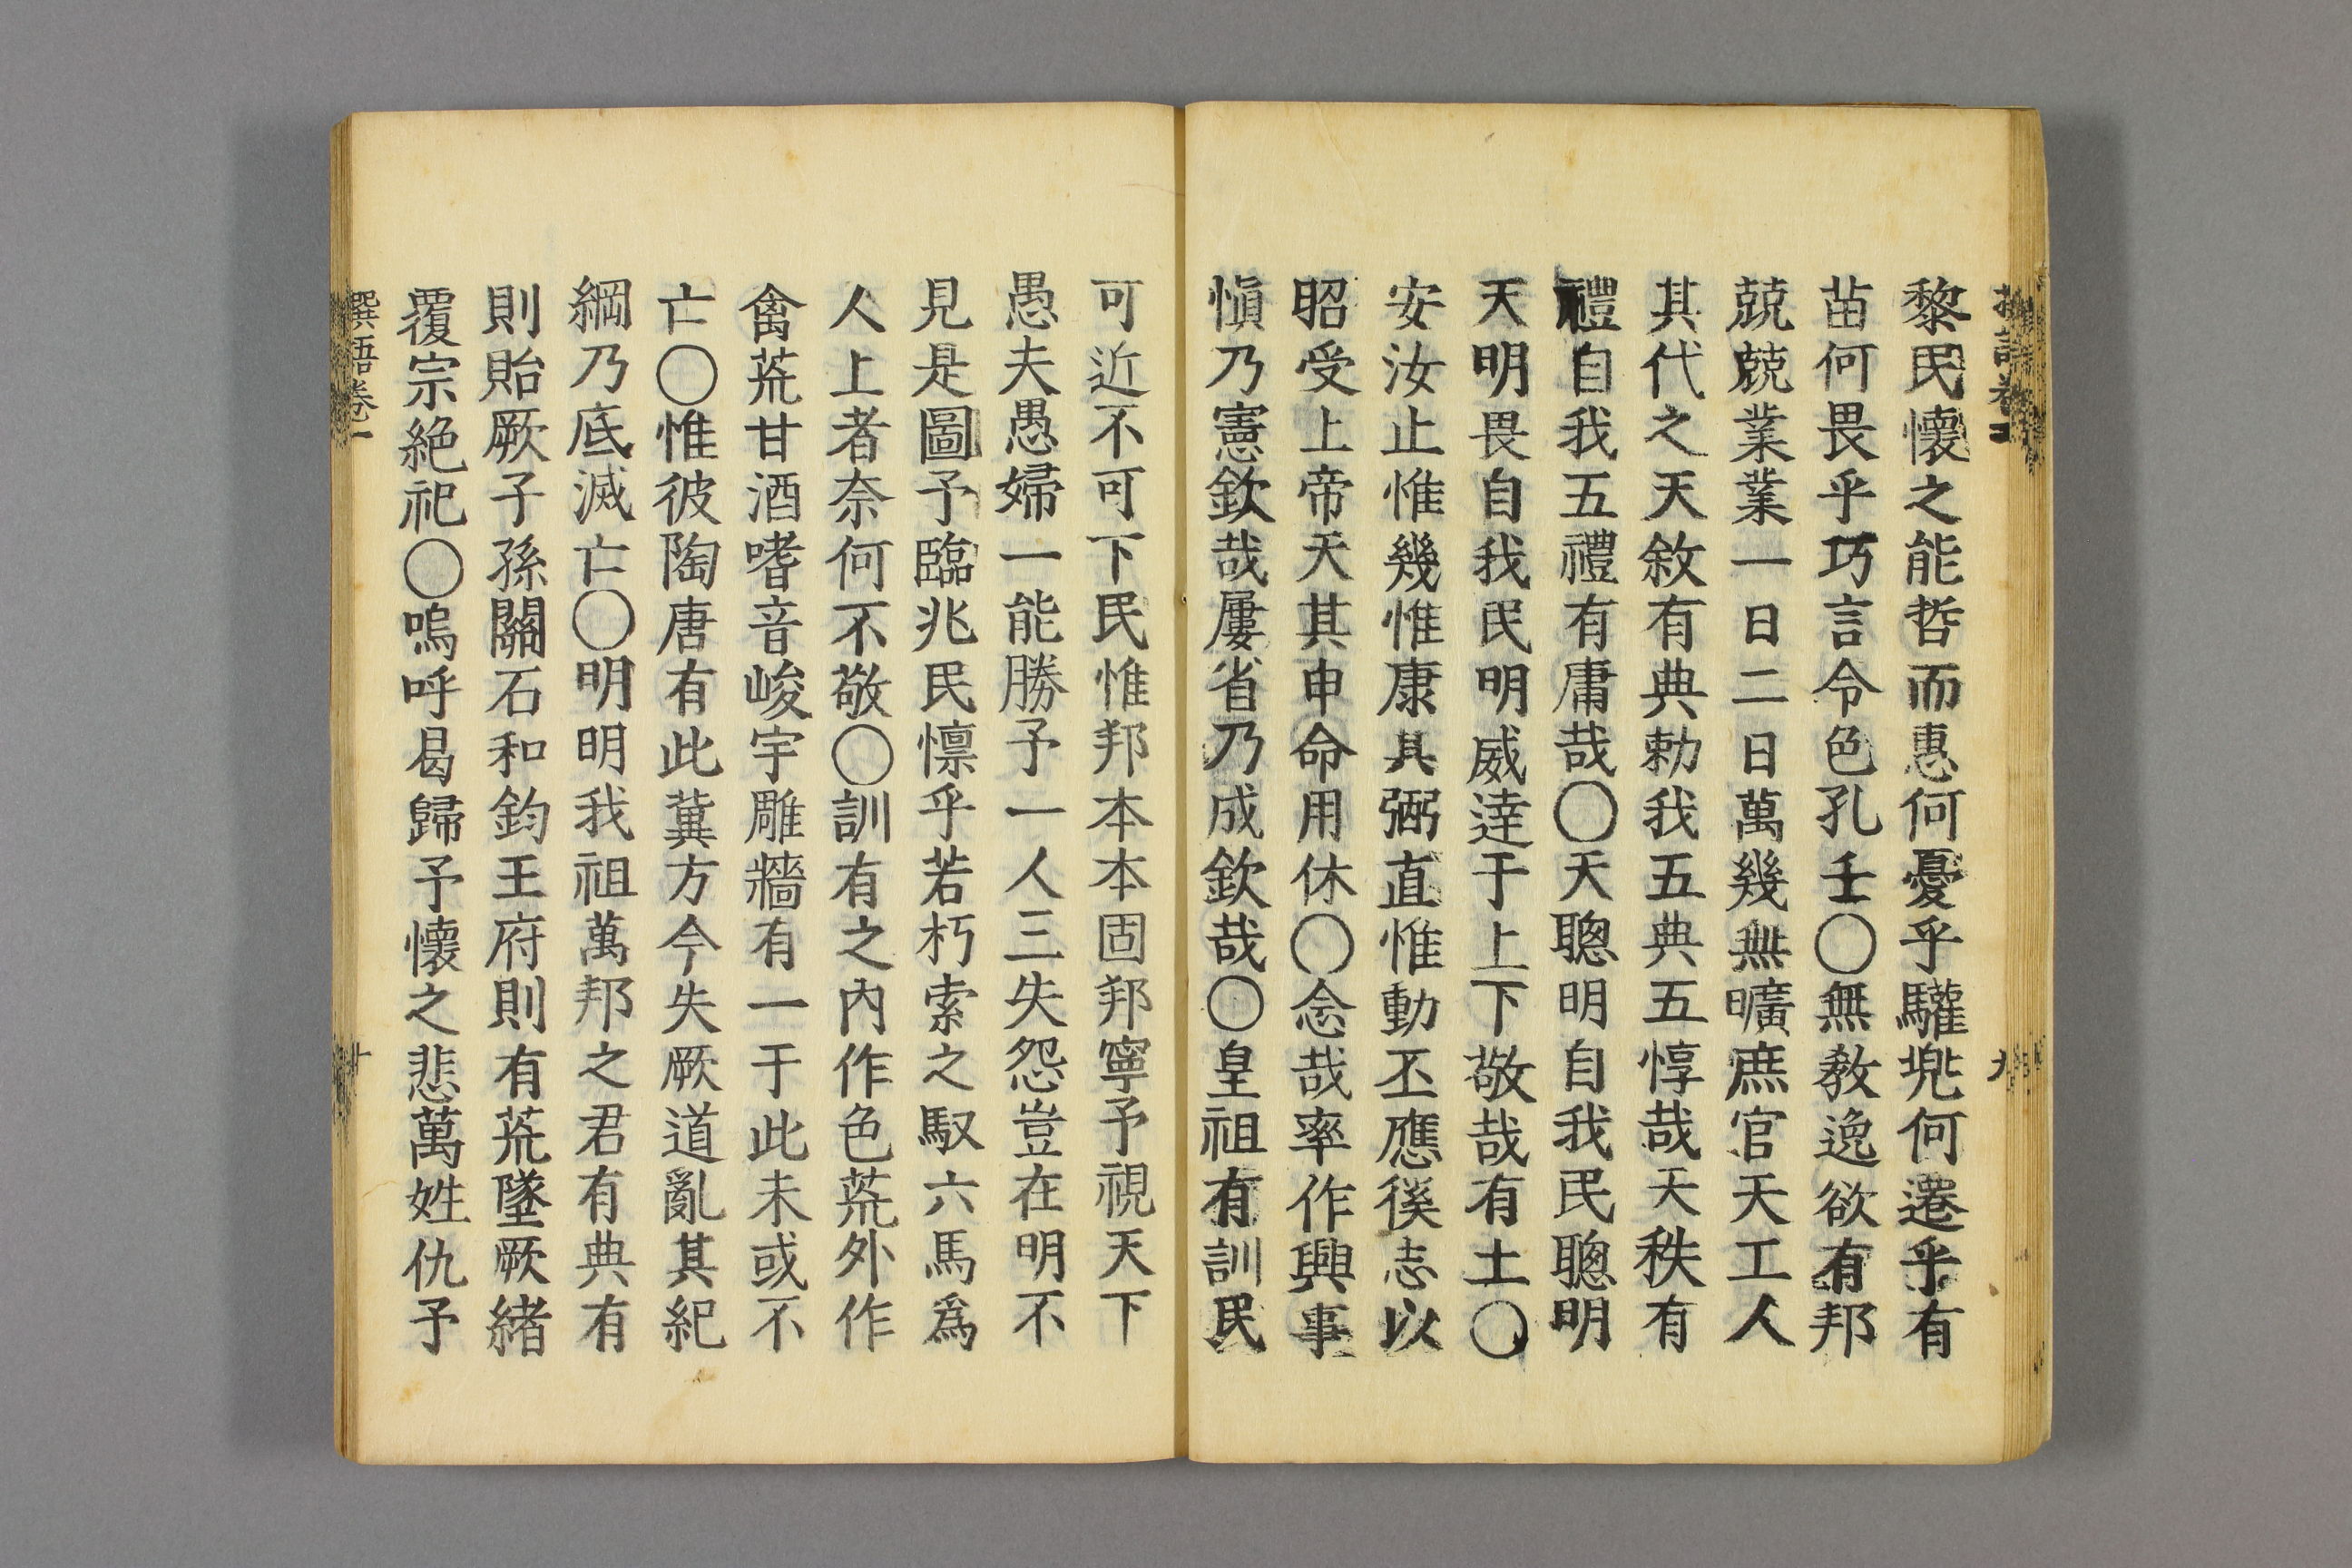 黎民懷之能哲而惠何憂乎驩兠何遷乎有
苗何畏乎巧言令色孔壬〇無敎逸欲有邦
兢兢業業一日二日萬幾無曠庶官天工人
其代之天敘有典勅我五典五惇哉天秩有
禮自我五禮有庸哉〇天聰明自我民聰明
天明畏自我民明威達于上下敬哉有土〇
安汝止惟幾惟康其弼直惟動丕應徯志以
昭受上帝天其申命用休〇念哉率作興事
愼乃憲欽哉屢省乃成欽哉〇皇祖有訓民
可近不可下民惟邦本本固邦寧予視天下
愚夫愚婦一能勝予一人三失怨豈在明不
見是圖予臨兆民懍乎若朽索之馭六馬爲
人上者奈何不敬〇訓有之內作色荒外作
禽荒甘酒嗜音峻宇雕牆有一于此未或不
亡〇惟彼陶唐有此冀方今失厥道亂其紀
綱乃底滅亡〇明明我祖萬邦之君有典有
則貽厥子孫關石和鈞王府則有荒墜厥緖
覆宗絶祀〇嗚呼曷歸予懷之悲萬姓仇予
撰語卷一
十